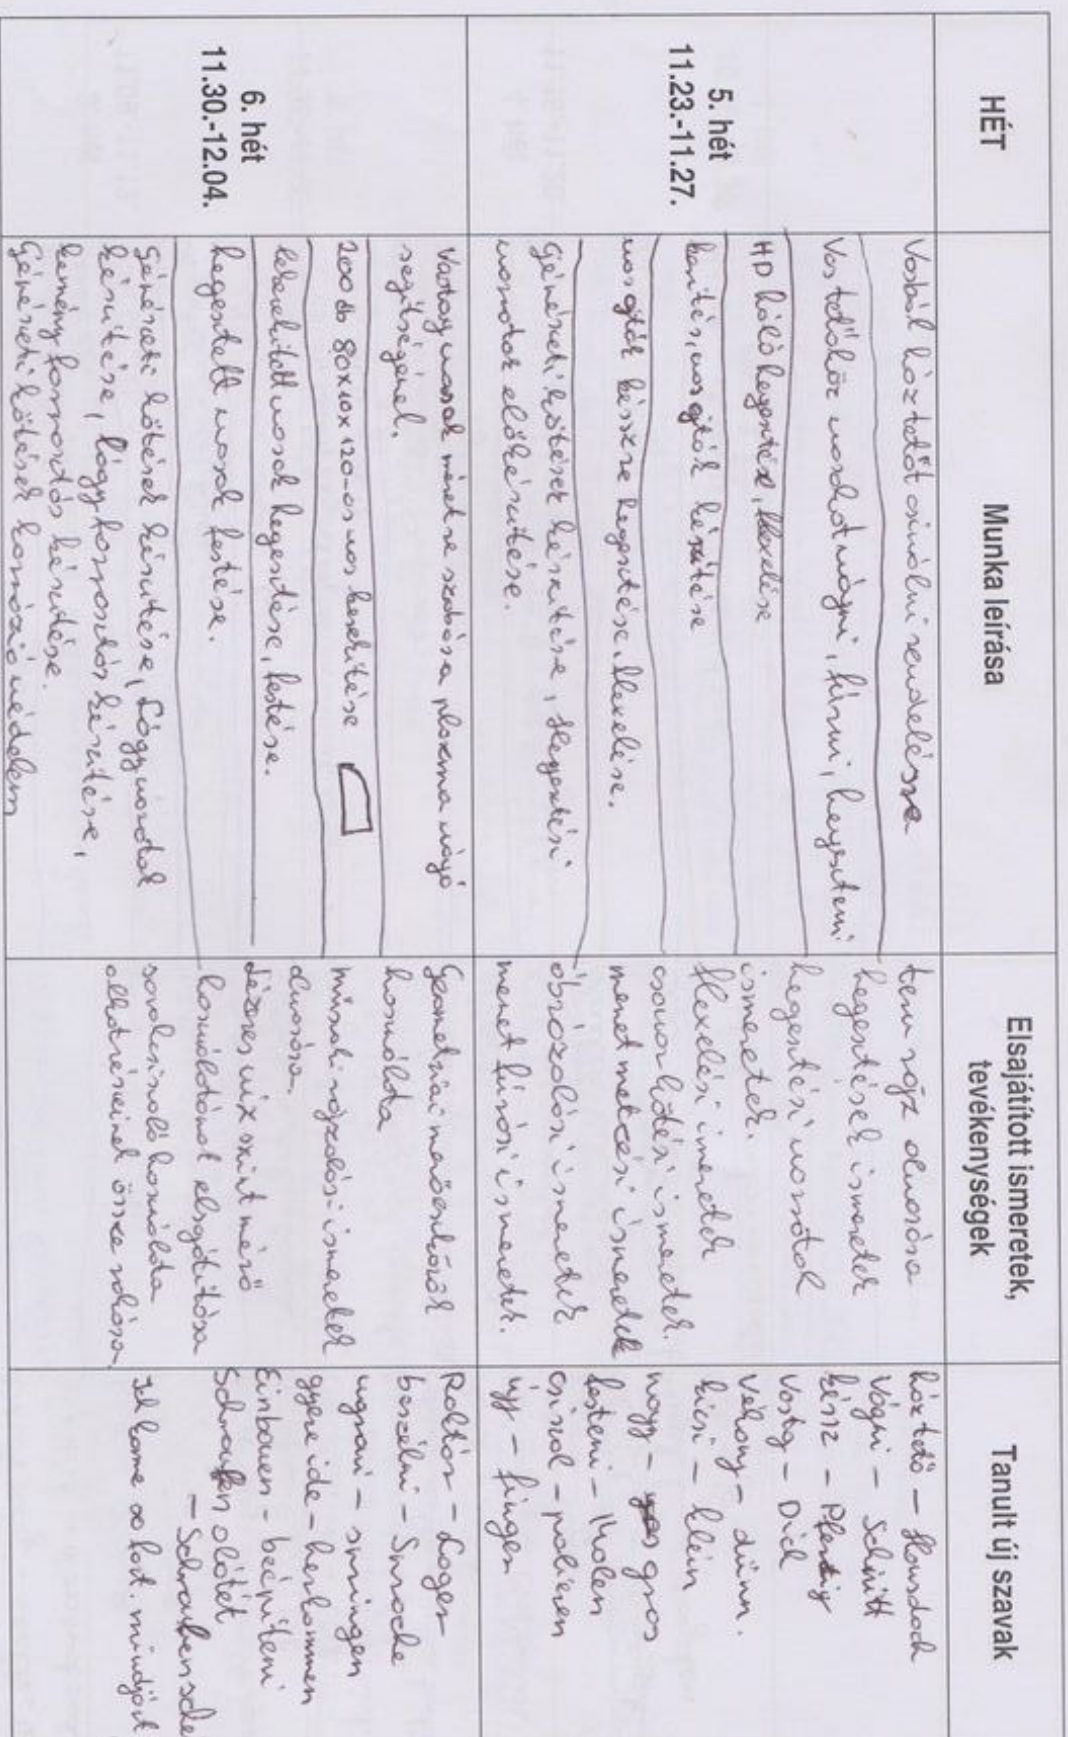 HÉT
Munka leírása
Elsajátított ismeretek,
tevékenységek
Tanult új szavak
5. hét
11.23.-11.27.
Vasból háztetőt csinálni rendelésre
Vas tetőhöz vasakat vágni, fúrni, hegeszteni
HD háló hegesztése, flexelése
kerítés, vas ajtók készítése
vas ajtók készre hegesztése, flexelése.
Gépészeti kötések készítése, Hegesztési
varratok előkészítése.
terv rajz olvasása
hegesztések ismeretek
hegesztési varratok
ismeretek.
flexelési ismeretek
csavarkötési ismeretek.
menetmetszési ismeretek
ábrázolási ismeretek
menet fúrási ismeretek.
háztető – Hausdach
Vágni – Schnitt
kész – Pfertig
Vastag – Dick
Vékony – dünn.
kicsi – klein
nagy – gros
festeni – Malen
csiszol – polieren
ujj – fingen
6. hét
11.30.-12.04.
Vastag vasak méretre szabása, plazma vágó
segítségével.
200 db 80x10x120-as vas lesarkítése
lesarkított vasak hegesztése, festése.
hegesztett vasak festése.
Gépészeti kötések készítése, Lágy varratok
készítése, lágy forrasztás készítése,
kemény forrasztás készítése.
Gépészeti kötések korrózió védelem
Geometriai mérőeszközök
használata
műszaki rajzolási ismeretek
olvasása.
Lézeres víz szint mérő
használatának elsajátítása
sarokcsiszoló használata
alkatrészeinek össze rakása
Raktár – Lager
beszélni – Sprache
ugrani – springen
gyere ide – herkommen
Einbauen – beépíteni
Schrauben alátét
– Schraubensche
Ich kome sofort. mindjárt